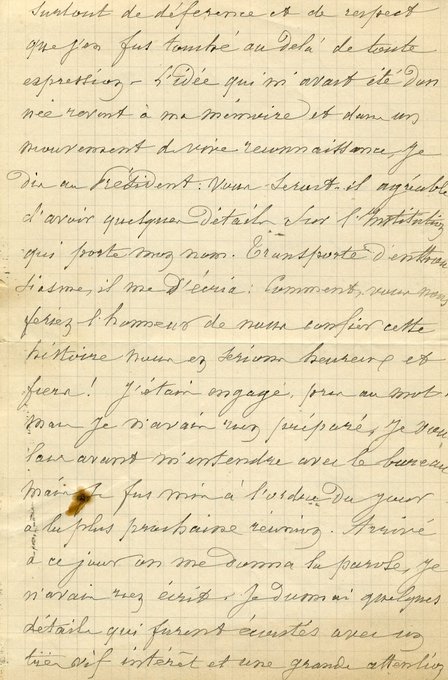 surtout de déférence et de respect
que j'en fus touché au delà de toute
expression - L'idée qui m'avait été don
née revint à ma mémoire et dans un
mouvement de vive reconnaissance, je
dis au Président : vous serait-il agréable
d'avoir quelques détails sur l'Institution
qui porte mon nom. Transporté d'enthou
siasme, il me s'écria : Comment, vous nous
feriez l'honneur de nous confier cette
histoire nous en serions heureux et
fiers ! J'étais engagé, pris au mot
mais je n'avais rien préparé, je vou
lais avant m'entendre avec le bureau
mais je fus mis à l'ordre du jour
à la plus prochaine réunion. Arrivé
à ce jour on me donna la parole, je
n'avais rien écrit. Je donnai quelques
détails qui furent écoutés avec un
très vif intérêt et une grande attention